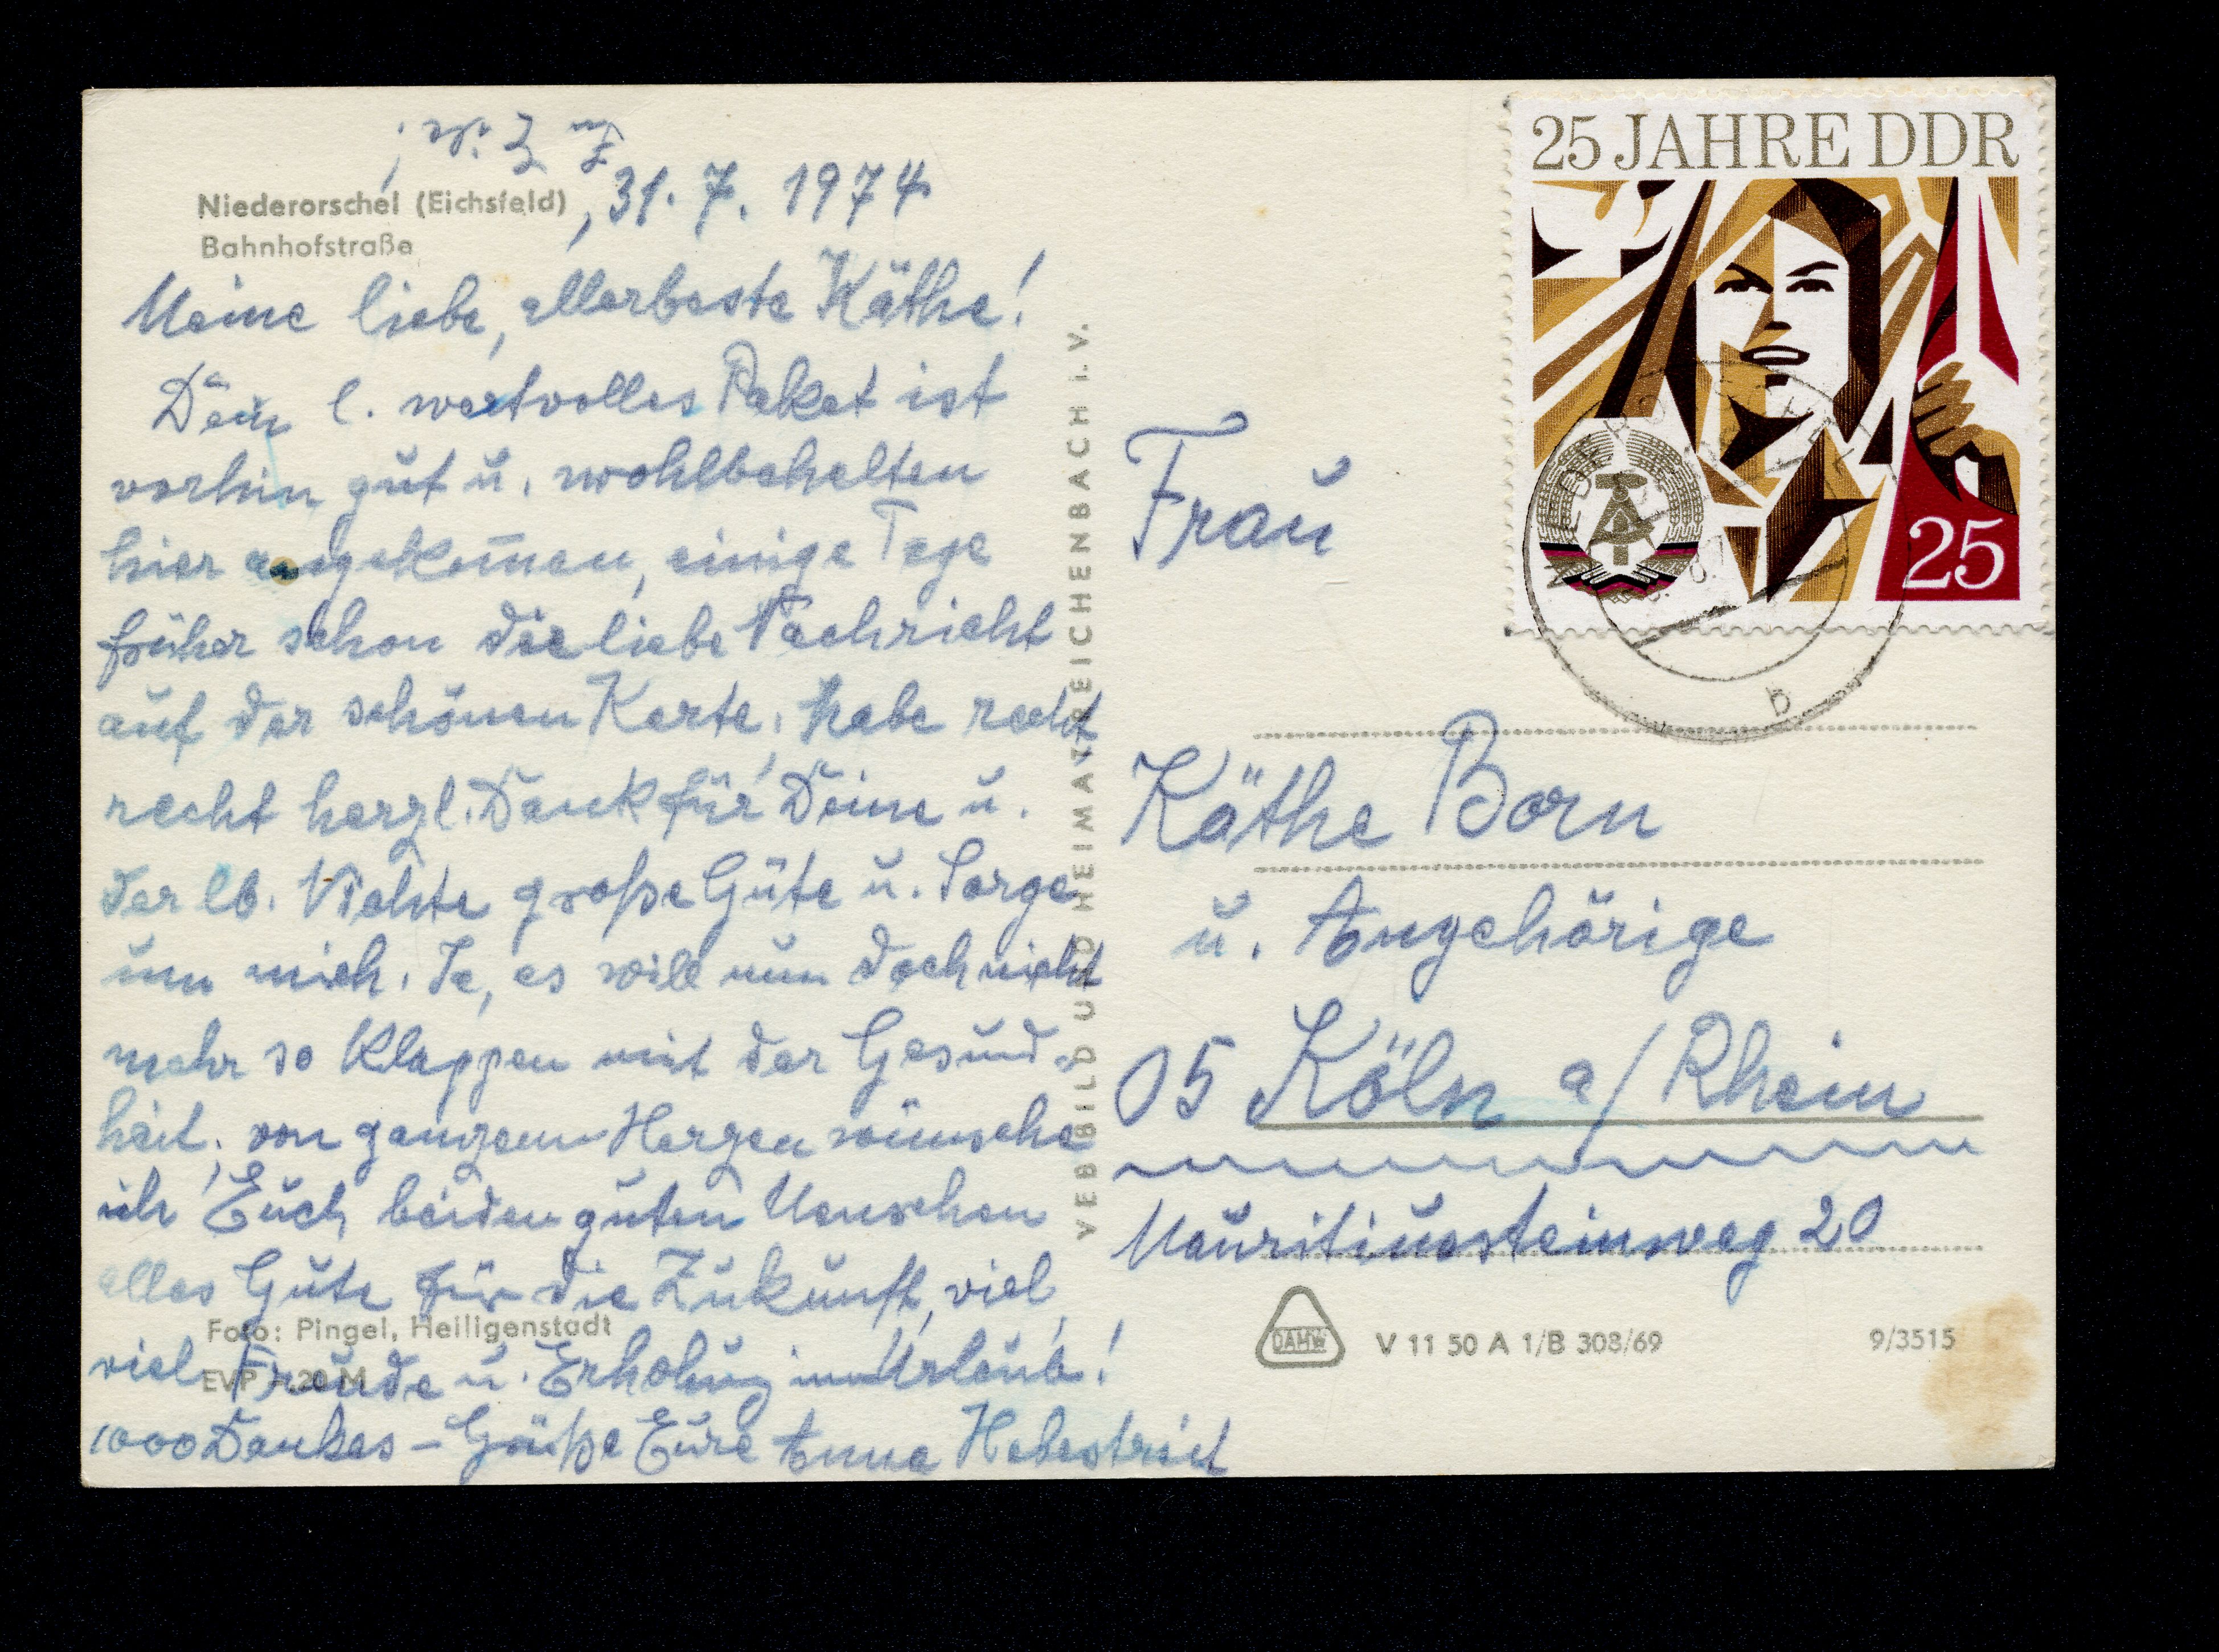 Niederorschel (Eichsfeld)
, 31. 7. 1974
Bahnhofstraße
Meine liebe, allerbeste Käthe!
Dein l. wertvolles Paket ist
vorhin gut u. wohlbehalten
hier angekom̅en, einige Tage
früher schon die liebe Nachricht
auf der schönen Karte; habe recht
recht herzl. Dank für Deine u.
der lb. Nichte große Güte u. Sorge
um mich. Ja, es will nun doch nicht
mehr so klappen mit der Gesund-
heit; von ganzem Herzen wünsche
ich Euch beiden guten Menschen
alles Gute für die Zukunft, viel,
viel Freude u. Erholung im Urlaub!
1000 Dankes - Grüße Eure Anna Hebestreit
Foto: Pingel, Heiligenstadt
EVP -.20 M
VEB BILD UND HEIMAT REICHENBACH i. V.
25 JAHRE DDR
25
b
Frau
Käthe Born
u. Angehörige
05 Köln a/Rhein
Mauritiussteinweg 20
DAHW
V 11 50 A 1/B 308/69
9/3515